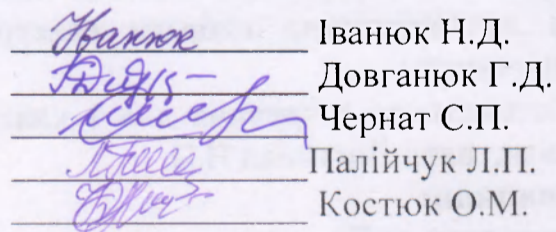 Іванюк Н.Д.
Довганюк Г.Д.
Чернат С.П.
Палійчук Л.П.
Костюк О.М.